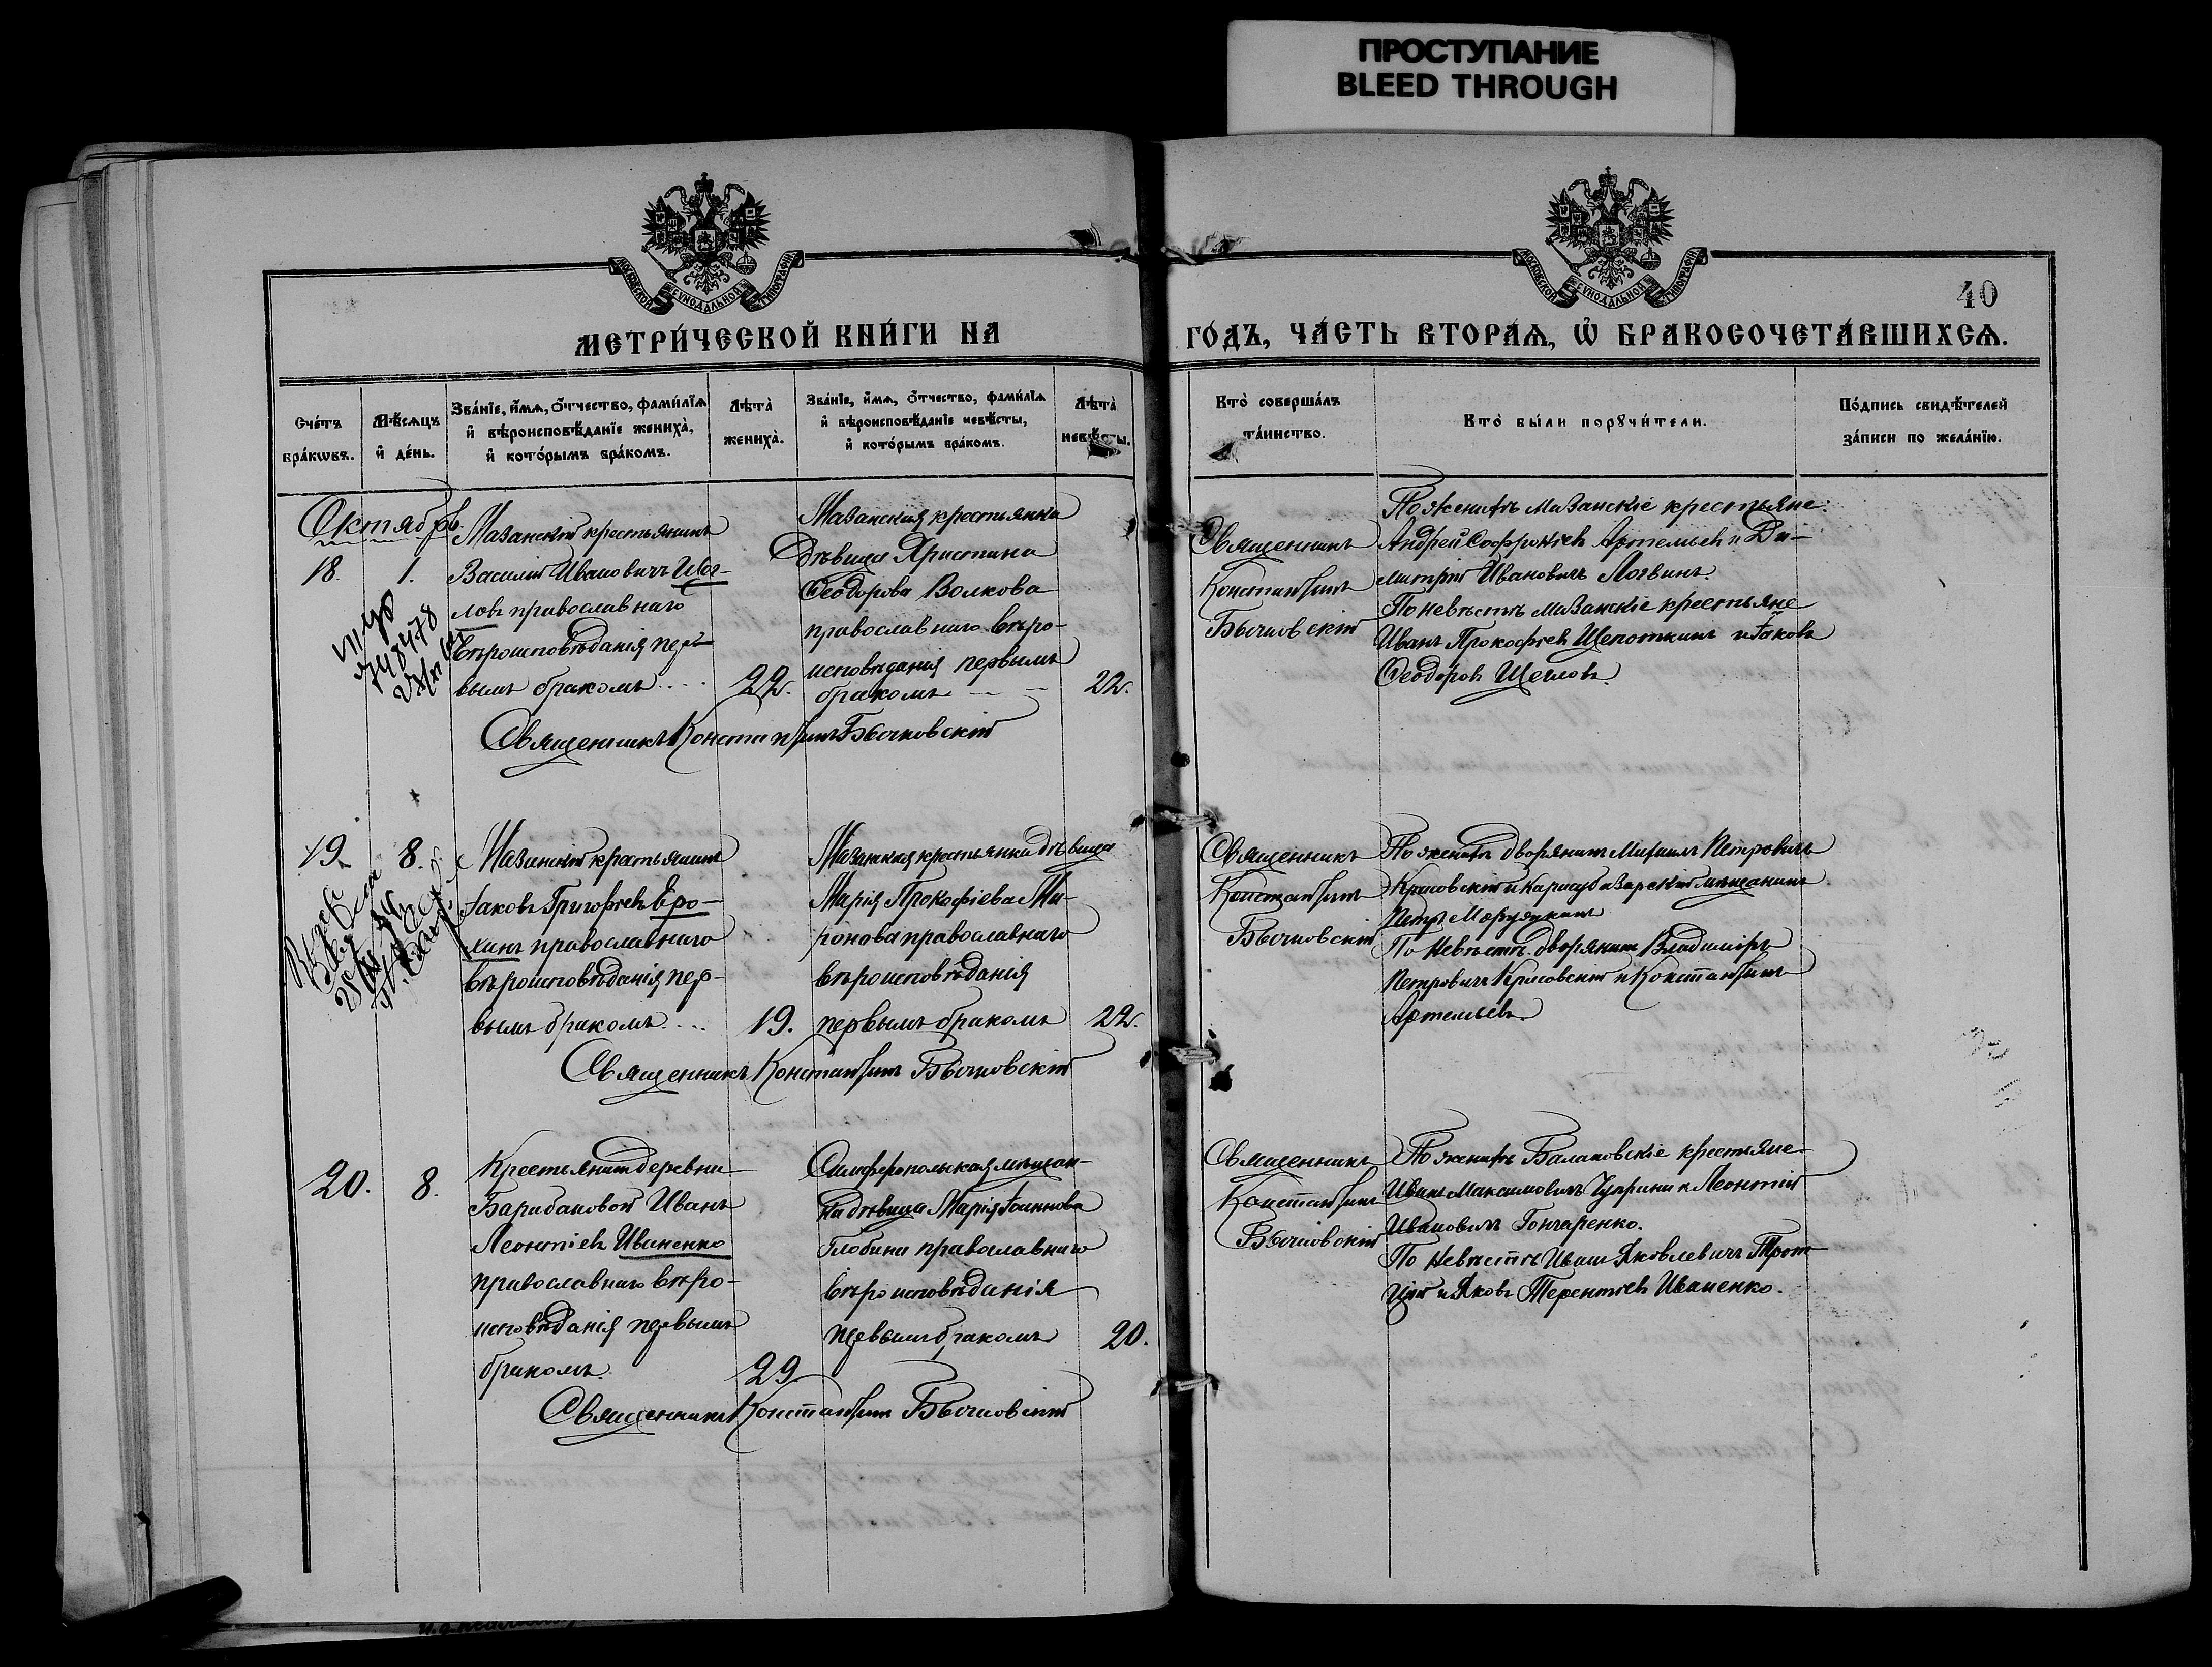 ПРОСТУПАНИЕ
BLEED THROUGH
МОСКОВСКОЙ СѴНОДАЛЬНОЙ ТИПОГРАФІИ
МОСКОВСКОЙ СѴНОДАЛЬНОЙ ТИПОГРАФІИ
40
МЕТРИ́ЧЕСКОЙ КНИ́ГИ НА
ГО́ДЪ, ЧА́СТЬ ВТОРА́Ѧ, Ѡ҆ БРАКОСОЧЕТА́ВШИХСѦ.
Сче́тъ
бра́кѡвъ.
Мѣ́сѧцъ
и҆ де́нь.
Зва́нїе, и҆́мѧ, ѻ҆́тчество, фами́лїѧ
и҆ вѣроисповѣ́данїе жениха̀,
и҆ кото́рымъ бра́комъ.
Лѣта̀
жениха̀.
Зва́нїе, и҆́мѧ, ѻ҆́тчество, фами́лїѧ
и҆ вѣроисповѣ́данїе невѣ́сты,
и҆ кото́рымъ бра́комъ.
Лѣта̀
невѣ́сты.
Кто̀ соверша́лъ
та́инство.
Кто̀ бы́ли порꙋчи́тели.
По́дпись свидѣ́телей
за́писи по жела́нїю.
Октябрь.
18.
1.
Мазанскій крестьянинъ
Василій Ивановичъ Щег-
ловъ православнаго
вѣроисповѣданія пер-
вымъ бракомъ....
22.
Мазанская крестьянка
дѣвица Христина
Ѳеодорова Волкова
православнаго вѣро-
исповѣданія первымъ
бракомъ
22.
Священникъ
Константинъ
Бычковскій
По женихѣ Мазанскіе крестьяне:
Андрей Софроніевъ Артемьевъ и Ди-
митрій Ивановичъ Логвинъ.
По невѣстѣ Мазанскіе крестьяне
Иванъ Прокофіевъ Щепоткинъ и Іаковъ
Ѳеодоровъ Щегловъ.
Священникъ Константинъ Бычковскій
19.
8.
Мазанскій крестьянинъ
Іаковъ Григоріевъ Еро-
хинъ православнаго
вѣроисповѣданія пер-
вымъ бракомъ....
19.
Мазанская крестьянка дѣвица
Марія Прокофіева Ми-
ронова православнаго
вѣроисповѣданія
первымъ бракомъ
22.
Священникъ
Константинъ
Бычковскій
По женихѣ дворянинъ Михаилъ Петровичъ
и Карасубазарскій мѣщанинъ
Петръ
По невѣстѣ дворянинъ Владиміръ
Петровичъ и Константинъ
Артемьевъ
Священникъ Константинъ Бычковскій
20.
8.
Крестьянинъ деревни
Барабановой Иванъ
Леонтіевъ Иваненко
православнаго вѣро-
исповѣданія первымъ
бракомъ.
29.
Симферопольская мѣщан-
ка дѣвица Марія Іоаннова
Глобина православнаго
вѣроисповѣданія
первымъ бракомъ
20.
Священникъ
Константинъ
Бычковскій
По женихѣ крестьяне
Иванъ Максимовичъ Чуприна и Леонтій
Ивановичъ Гончаренко.
По невѣстѣ Иванъ Яковлевичъ
и Яковъ Терентіевъ Иваненко.
Священникъ Константинъ Бычковскій